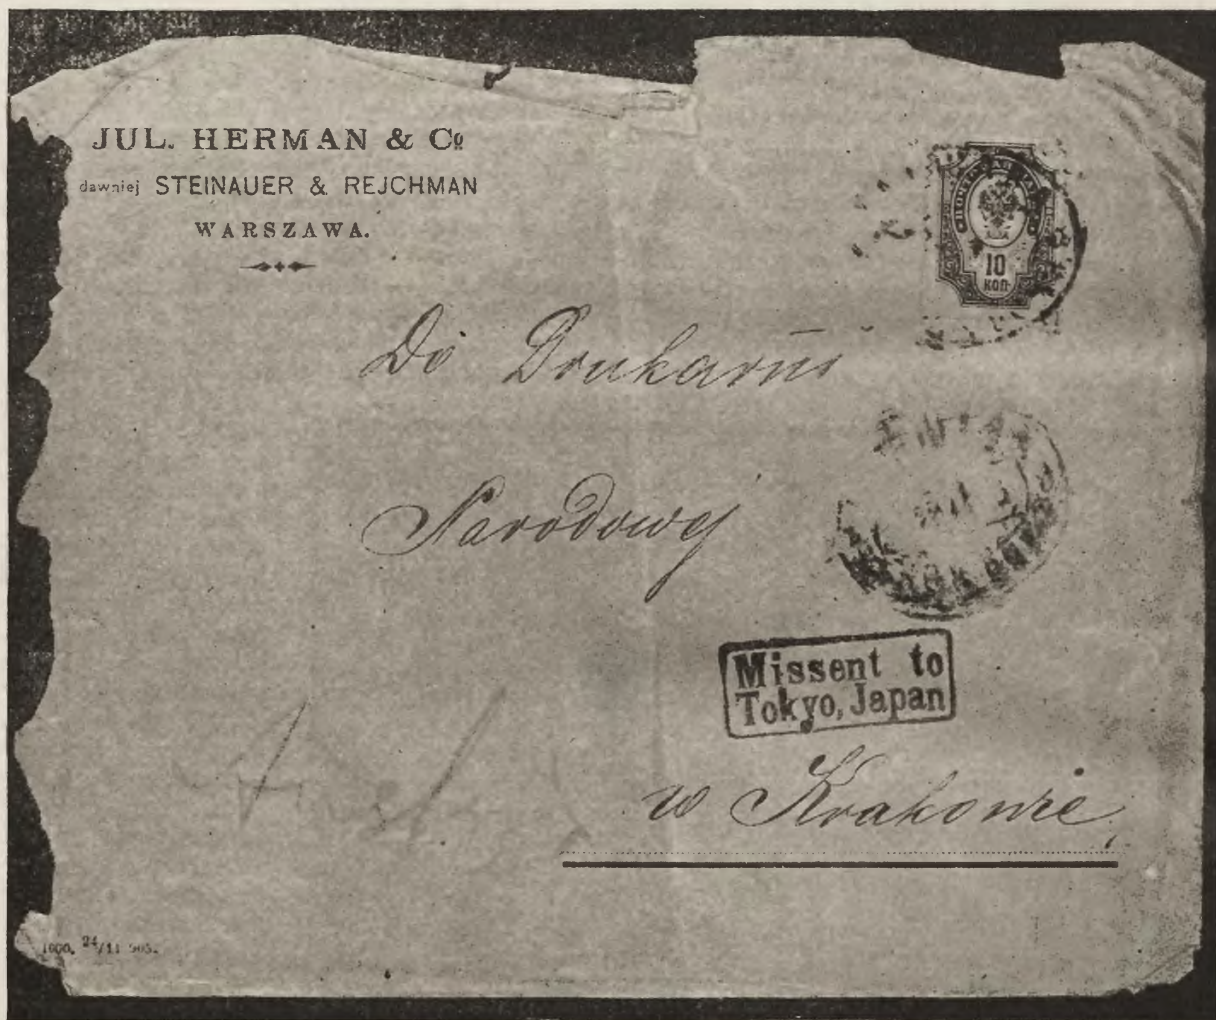 JUL. HERMAN & Cº
dawniej STEINAUER & REJCHMAN
WARSZAWA.
ПОЧТОВАЯ МАРКА
10
КОП.
Do Drukarni
Narodowej
Missent to
Tokyo, Japan
w Krakowie
1000. 24/11 905.